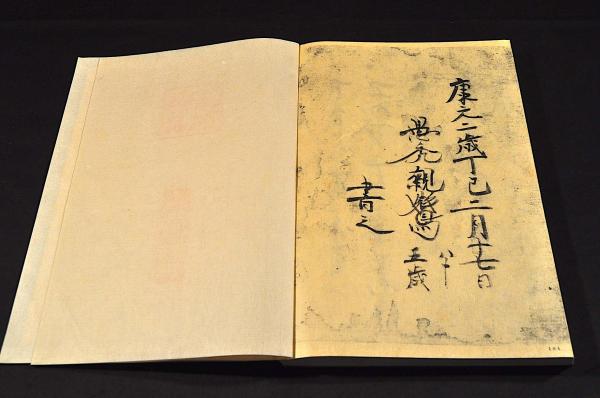 康元二歳丁巳二月十七日
愚禿親鸞 八十五歳
書之